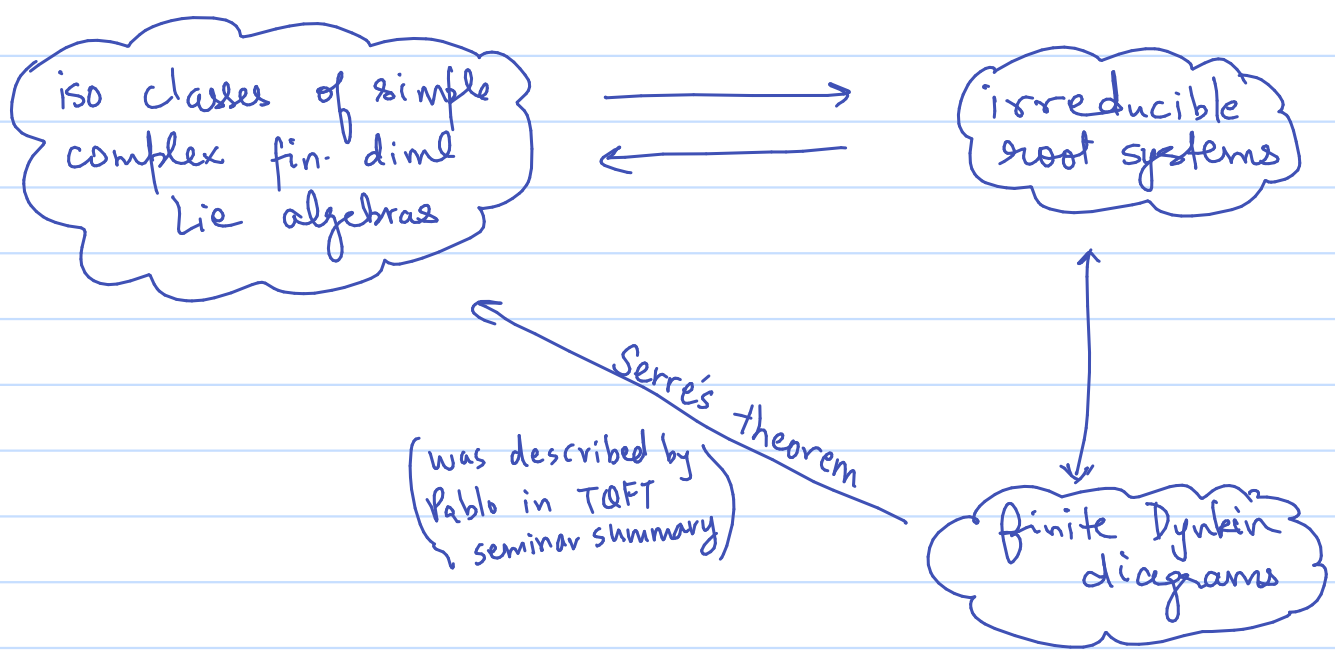 iso classes of simple
complex fin. diml
Lie algebras
irreducible
root systems
Serre's theorem
(was described by
Pablo in TQFT
seminar summary)
finite Dynkin
diagrams